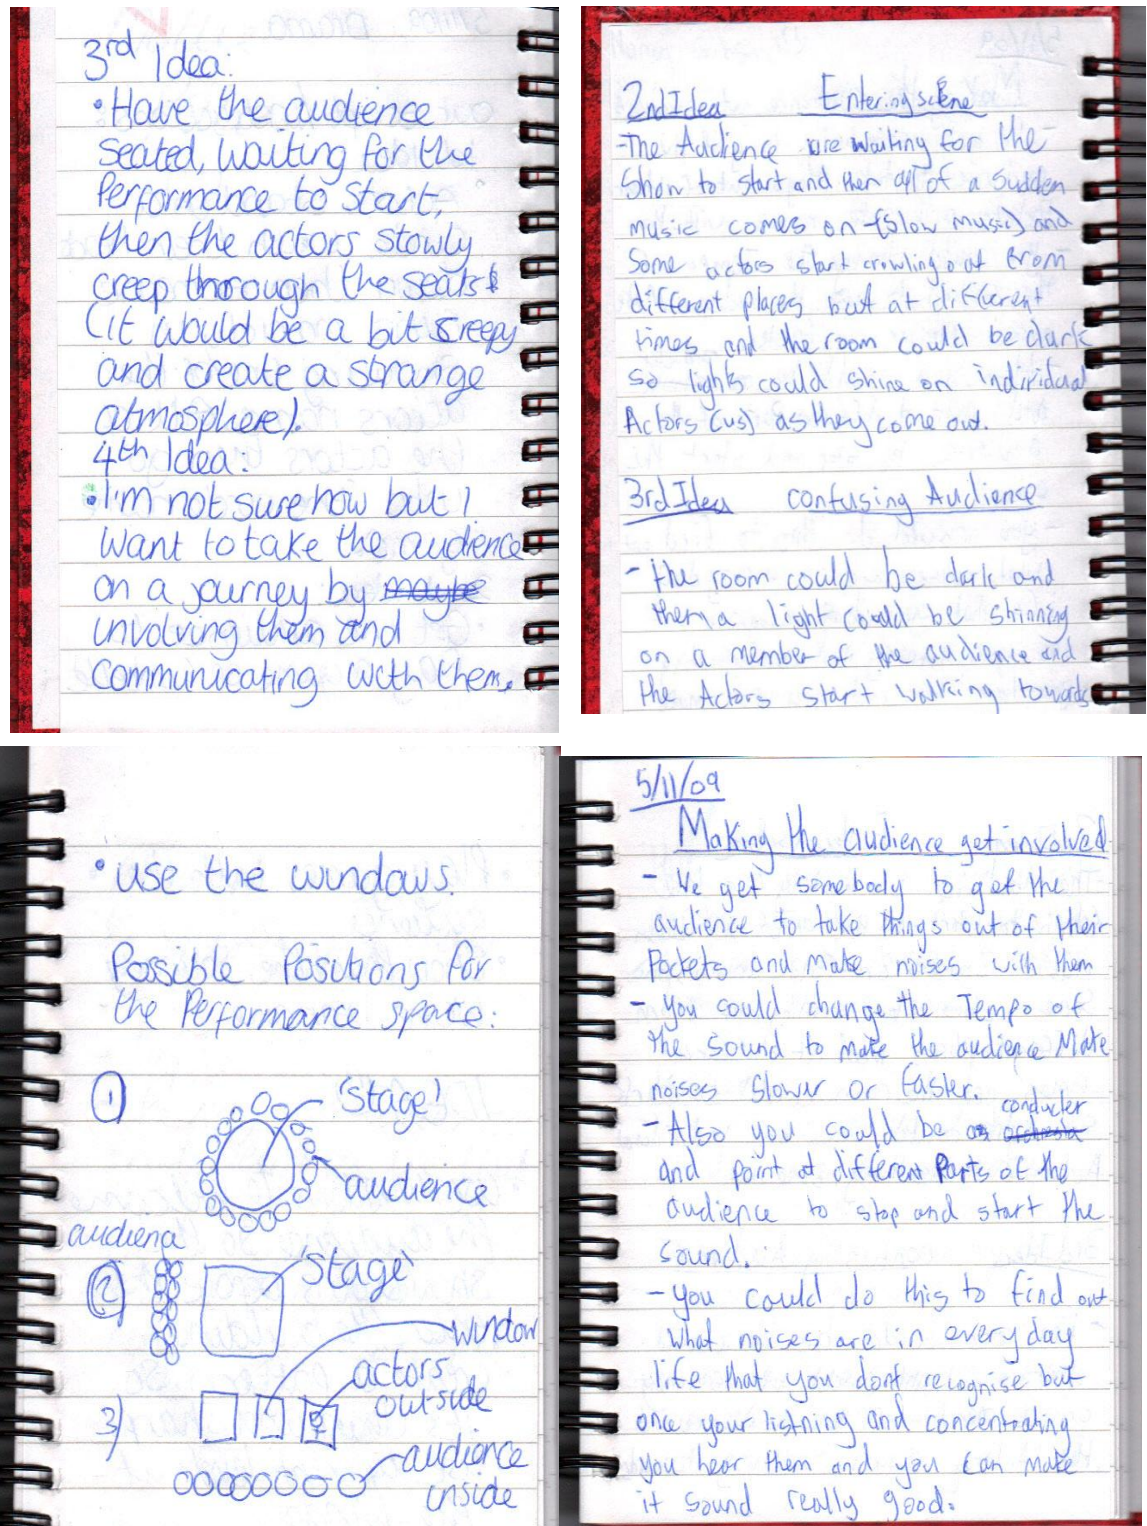 3rd Idea:
• Have the audience
seated, waiting for the
Performance to start,
then the actors slowly
creep thorough the seats
(it would be a bit creepy
and create a strange
atmosphere).
4th Idea:
• I'm not sure how but I
want to take the audience
on a journey by maybe
involving them and
communicating with them.
2nd Idea Entering scene
- The Audience are waiting for the
Show to start and then all of a sudden
music comes on - (slow music) and
Some actors start crawling out from
different places but at different
times and the room could be dark
so lights could shine on individual
Actors (us) as they come out.
3rd Idea confusing Audience
- the room could be dark and
then a light could be shinning
on a member of the audience and
the Actors start walking towards
• use the windows.
Possible Positions for
the Performance space:
1
'stage'
audience
audience
2
'stage'
window
actors
outside
3)
audience
inside
5/11/09
Making the audience get involved
- We get somebody to get the
audience to take things out of their
Pockets and make noises with them
- you could change the Tempo of
the sound to make the audience Make
noises slower or faster.
conducter
- Also you could be a orchestra
and point at different Parts of the
audience to stop and start the
sound.
- you could do this to find out
what noises are in every day
life that you dont recognise but
once your listning and concentrating
you hear them and you can make
it sound really good.